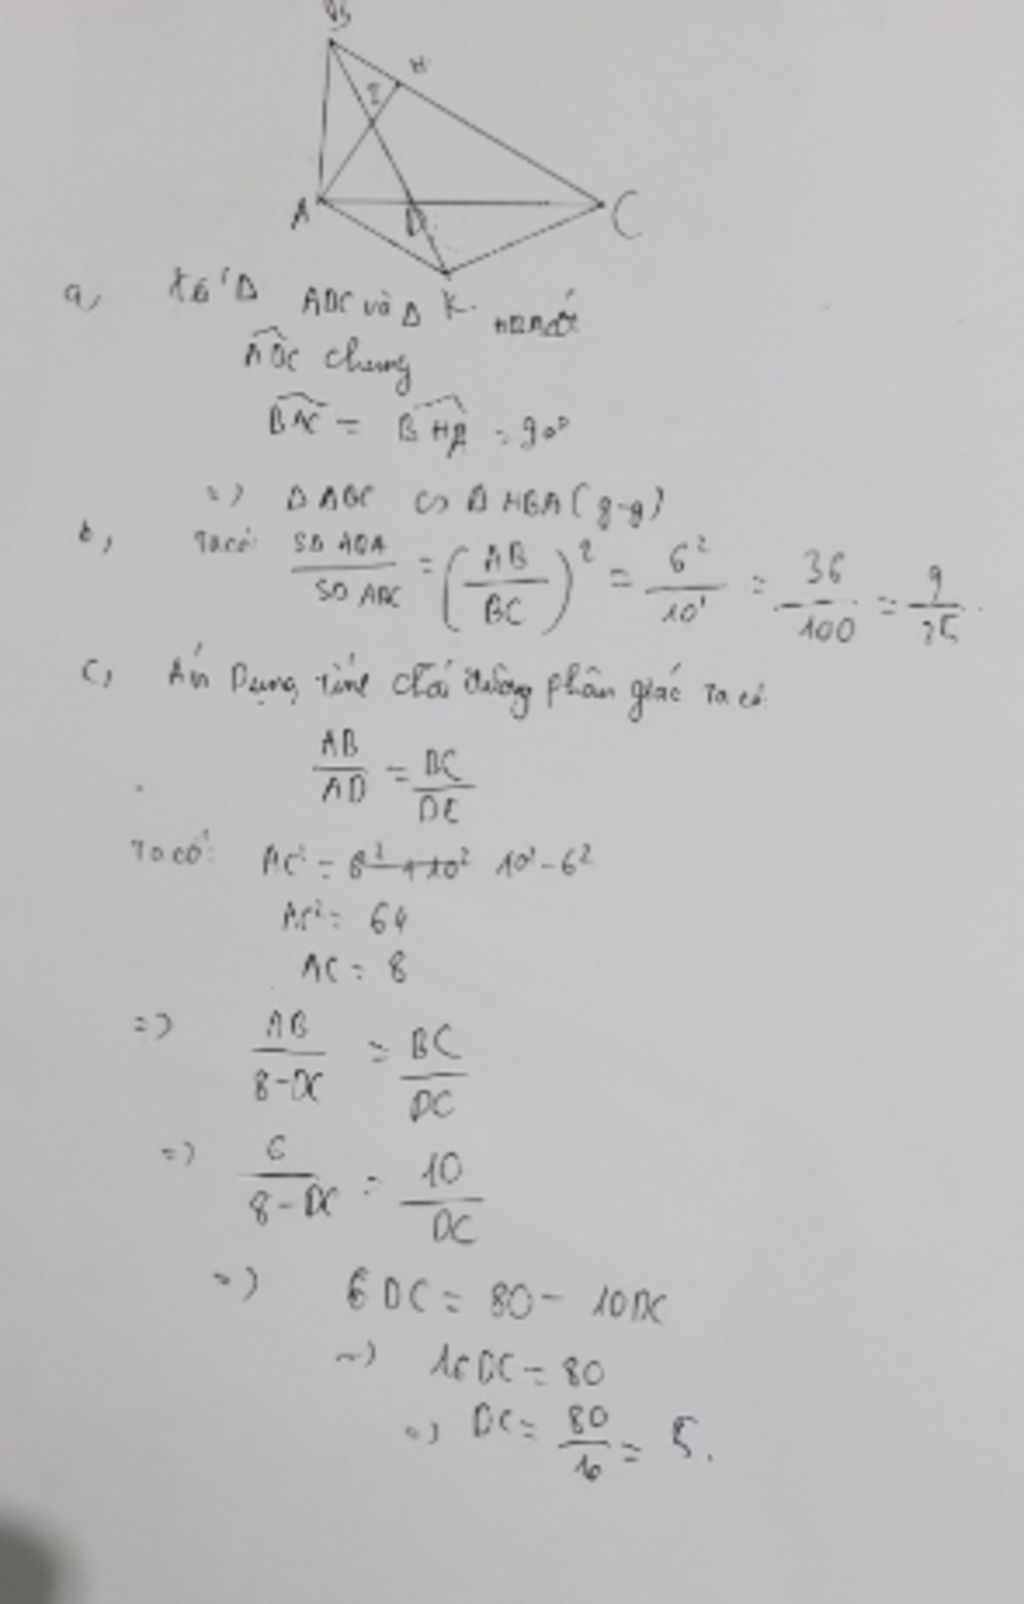 B
H
I
A
D
C
K
a, Xét Δ ABC và Δ HBA có
ABC chung
BAC = BHA = 90°
=> Δ ABC ∽ Δ HBA (g-g)
b, Ta có: = (AB/BC)² = 6²/10² = 36/100 = 9/25
c, Áp Dụng tính chất đường phân giác ta có
AB/AD = BC/DC
Ta có: AC² = 10² - 6²
AC² = 64
AC = 8
=> AB/8-DC = BC/DC
=> 6/8-DC = 10/DC
=> 6DC = 80 - 10DC
=> 16DC = 80
=> DC = 80/16 = 5.